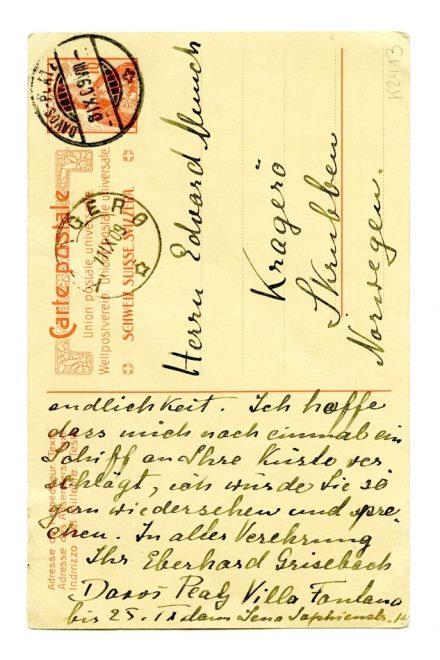 Carte postale
Union postale universelle
Weltpostverein. Unione postale universale.
SCHWEIZ. SUISSE. SVIZZERA.
DAVOS-PLATZ
GERÖ
Herrn Edvard Munch
Kragerö
Skrubben
Norwegen.
K2413
endlichkeit. Ich hoffe
dass mich noch einmal ein
Schiff an Ihre Küste ver
schlägt, ich würde Sie so
gern wiedersehen und spre
chen. In alter Verehrung
Ihr Eberhard Grisebach
Davos Platz Villa Fontana
bis 25. IX dann Jena Sophienstr.